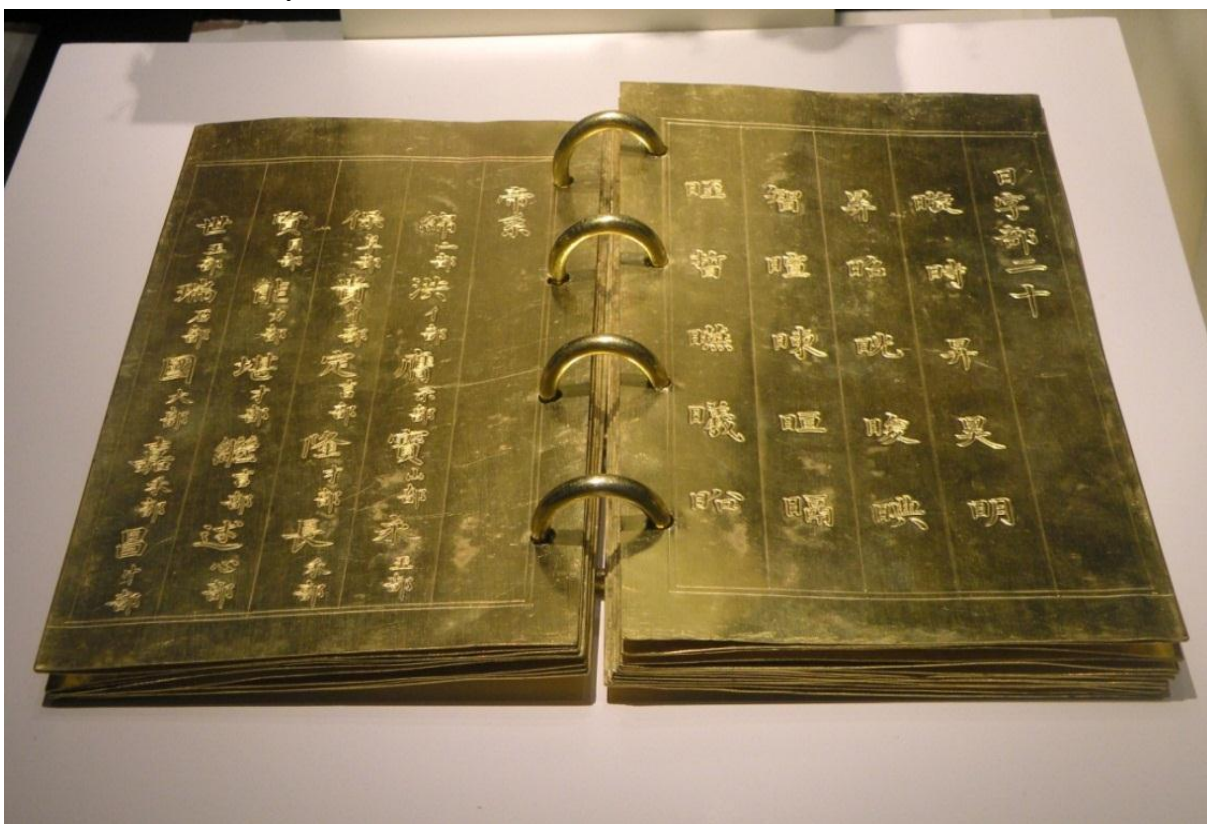 日字部二十
暶時昇昊明
昪昭晃晙晪
智暄暕晅㬏
晊晢曣曦
帝系
綿宀部洪亻部膺示部寶山部永玉部
保阜部貴亻部定言部隆扌部長禾部
賢貝部能力部堪扌部繼言部述心部
世玉部瑞石部國大部嘉禾部昌小部